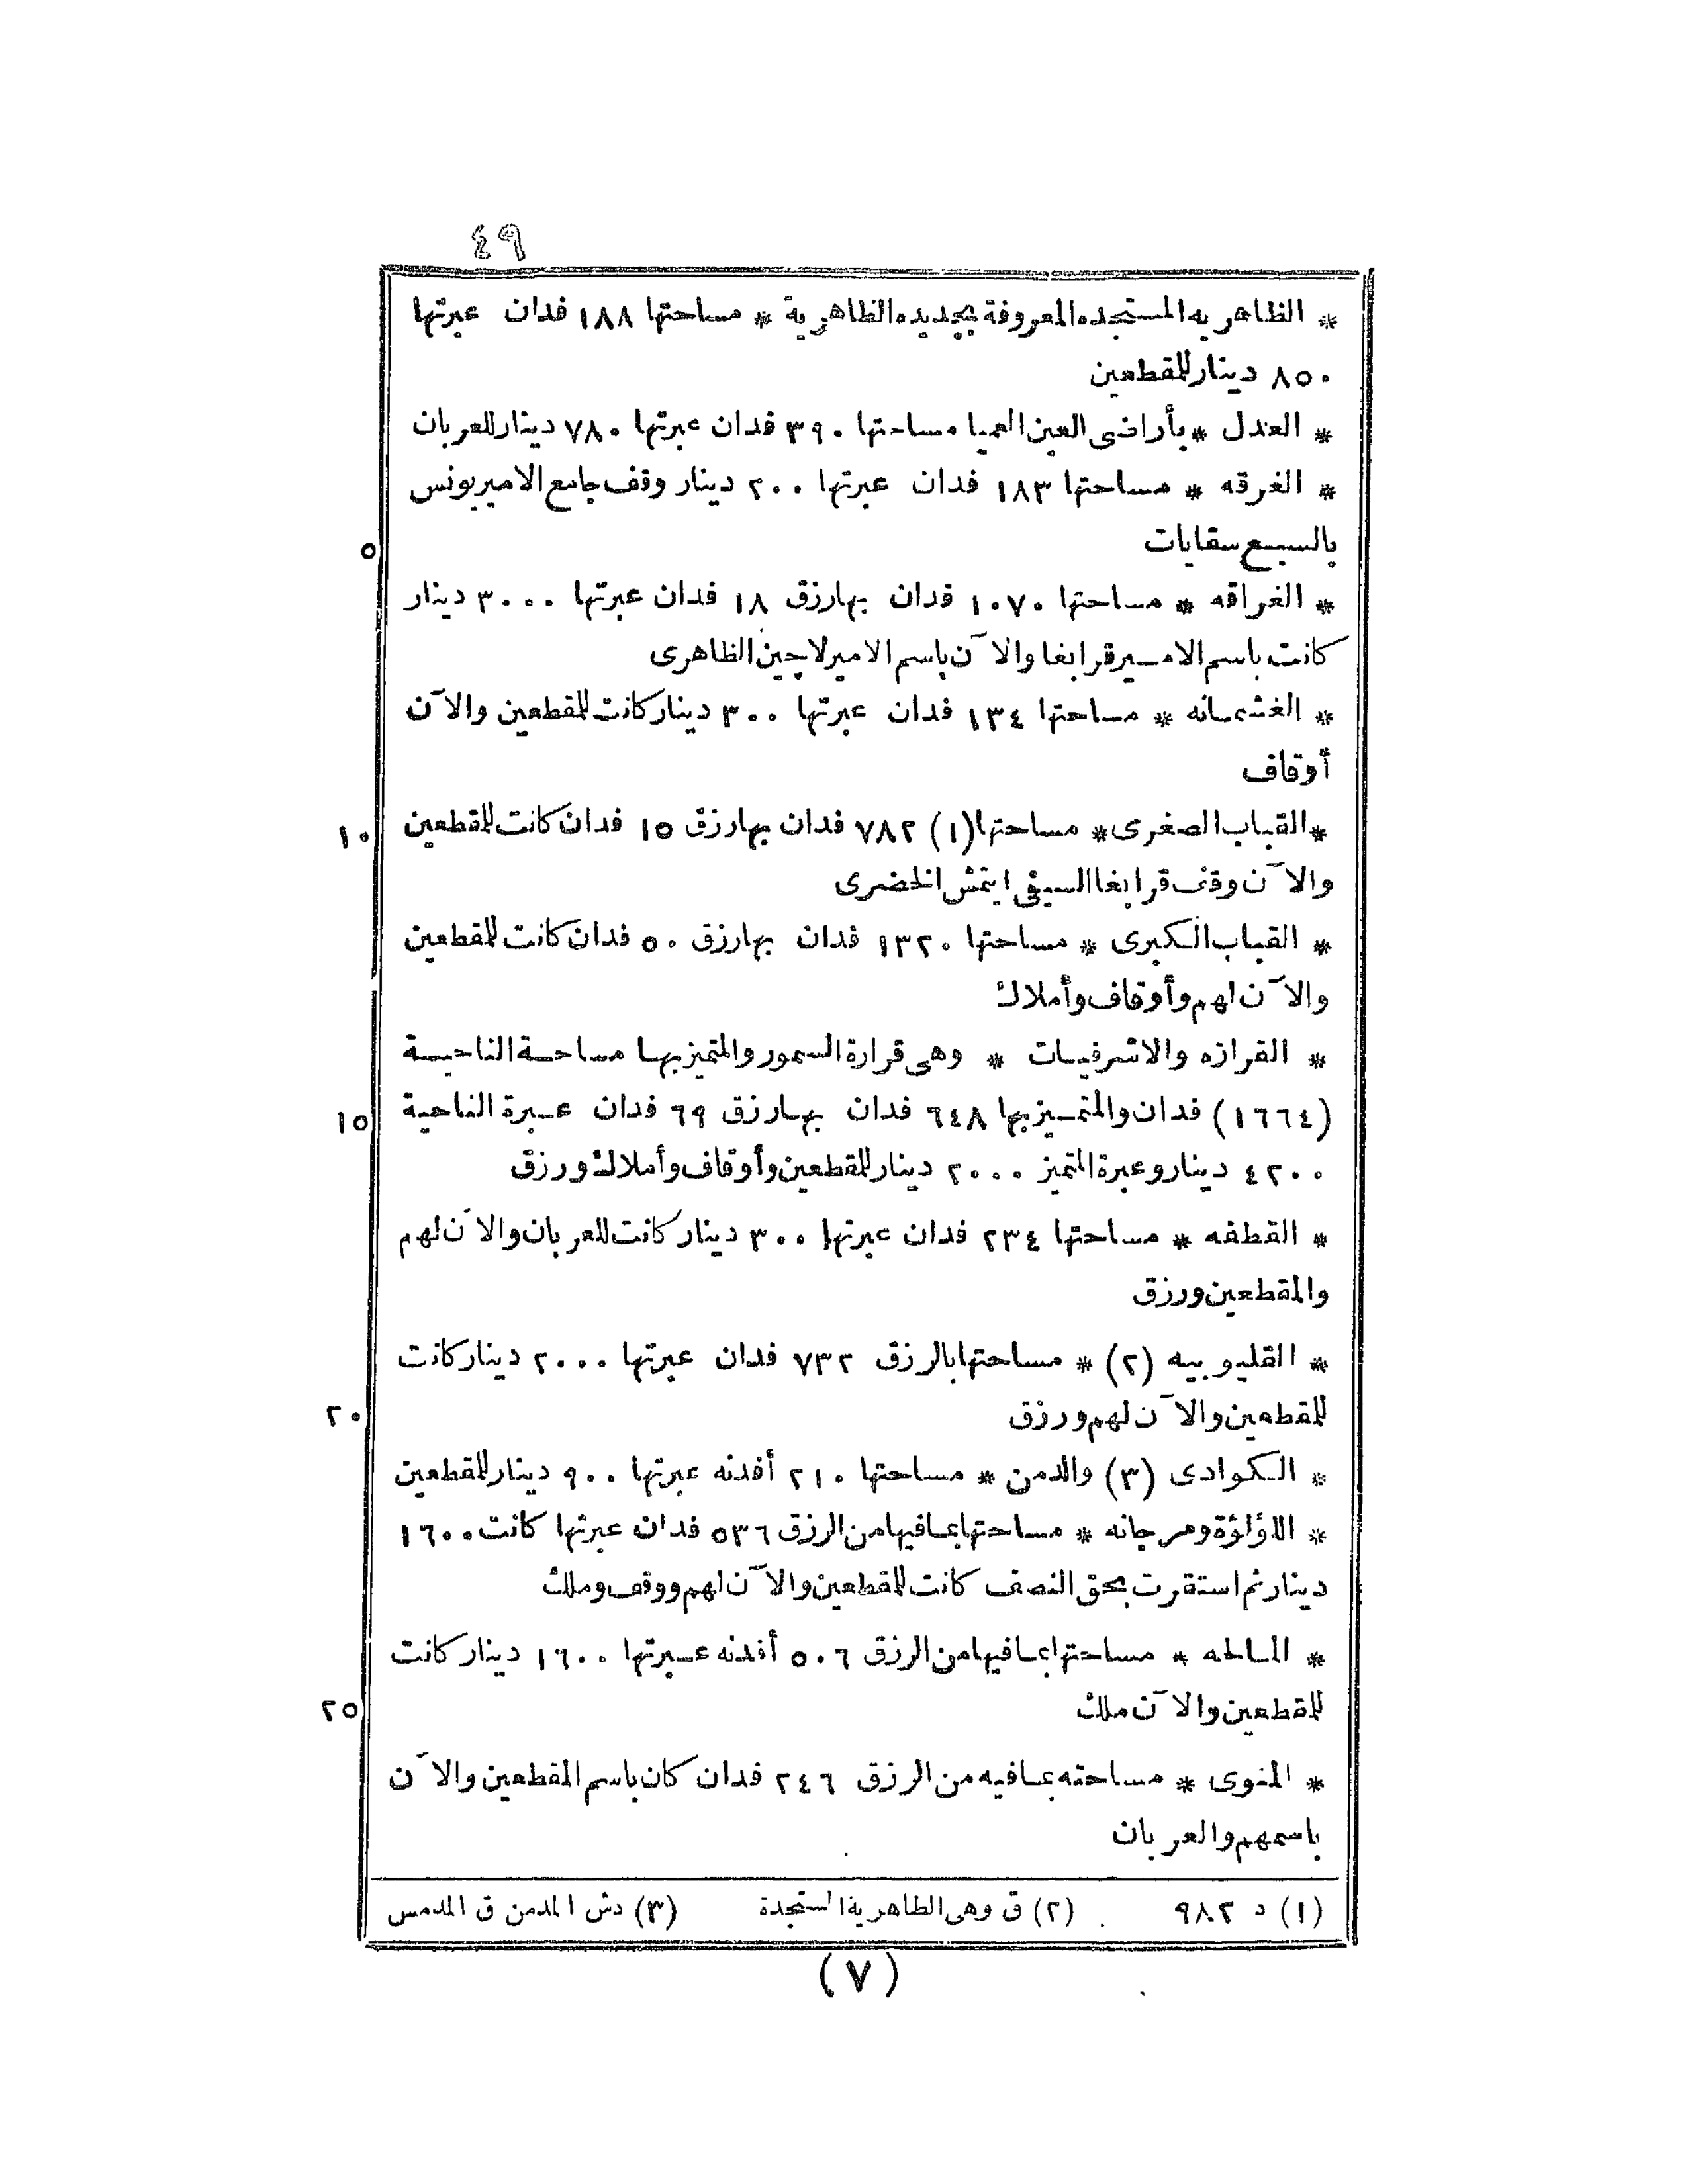 ٤٩
* الظاهريه المستجده المعروفة بجديده الظاهرية * مساحتها ١٨٨ فدان عبرتها
٨٥٠ دينار للمقطعين
* العدل * بأراضى العين العميا مساحتها ٣٩٠ فدان عبرتها ٧٨٠ دينار للعربان
* الغرقه * مساحتها ١٨٣ فدان عبرتها ٢٠٠ دينار وقف جامع الامير يونس
٥ بالسبع سقايات
* الغراقه * مساحتها ١٠٧٠ فدان بها رزق ١٨ فدان عبرتها ٣٠٠٠ دينار
كانت باسم الامير قرابغا والآن باسم الامير لاجين الظاهرى
* الغشمانه * مساحتها ١٣٤ فدان عبرتها ٣٠٠ دينار كانت للمقطعين والآن
أوقاف
١٠ * القباب الصغرى * مساحتها (١) ٧٨٢ فدان بها رزق ١٥ فدان كانت للمقطعين
والآن وقف قرابغا السيفى ايتمش الخضرى
* القباب الكبرى * مساحتها ١٣٢٠ فدان بها رزق ٥٠ فدان كانت للمقطعين
والآن لهم وأوقاف وأملاك
* القرازه والاشرفيات * وهى قرارة السمور والمتميز بها مساحة الناحية
١٥ (١٦٦٤) فدان والمتميز بها ٦٤٨ فدان بها رزق ٦٩ فدان عبرة الناحية
٤٢٠٠ دينار وعبرة المتميز ٢٠٠٠ دينار للمقطعين وأوقاف وأملاك ورزق
* القطفه * مساحتها ٢٣٤ فدان عبرتها ٣٠٠ دينار كانت للعربان والآن لهم
والمقطعين ورزق
* القليوبيه (٢) * مساحتها بالرزق ٧٣٢ فدان عبرتها ٢٠٠٠ دينار كانت
٢٠ للمقطعين والآن لهم ورزق
* الكوادى (٣) والدمن * مساحتها ٢١٠ أفدنه عبرتها ٩٠٠ دينار للمقطعين
* اللؤلؤة ومرجانه * مساحتها بما فيها من الرزق ٥٣٦ فدان عبرتها كانت ١٦٠٠
دينار ثم استقرت بحق النصف كانت للمقطعين والآن لهم ووقف وملك
* المالحه * مساحتها بما فيها من الرزق ٥٠٦ أفدنه عبرتها ١٦٠٠ دينار كانت
٢٥ للمقطعين والآن ملك
* المنوى * مساحته بما فيه من الرزق ٢٤٦ فدان كان باسم المقطعين والآن
باسمهم والعربان
(١) د ٩٨٢ (٢) ق وهى الطاهرية المستجدة (٣) دش المدمن ق المدمس
(٧)